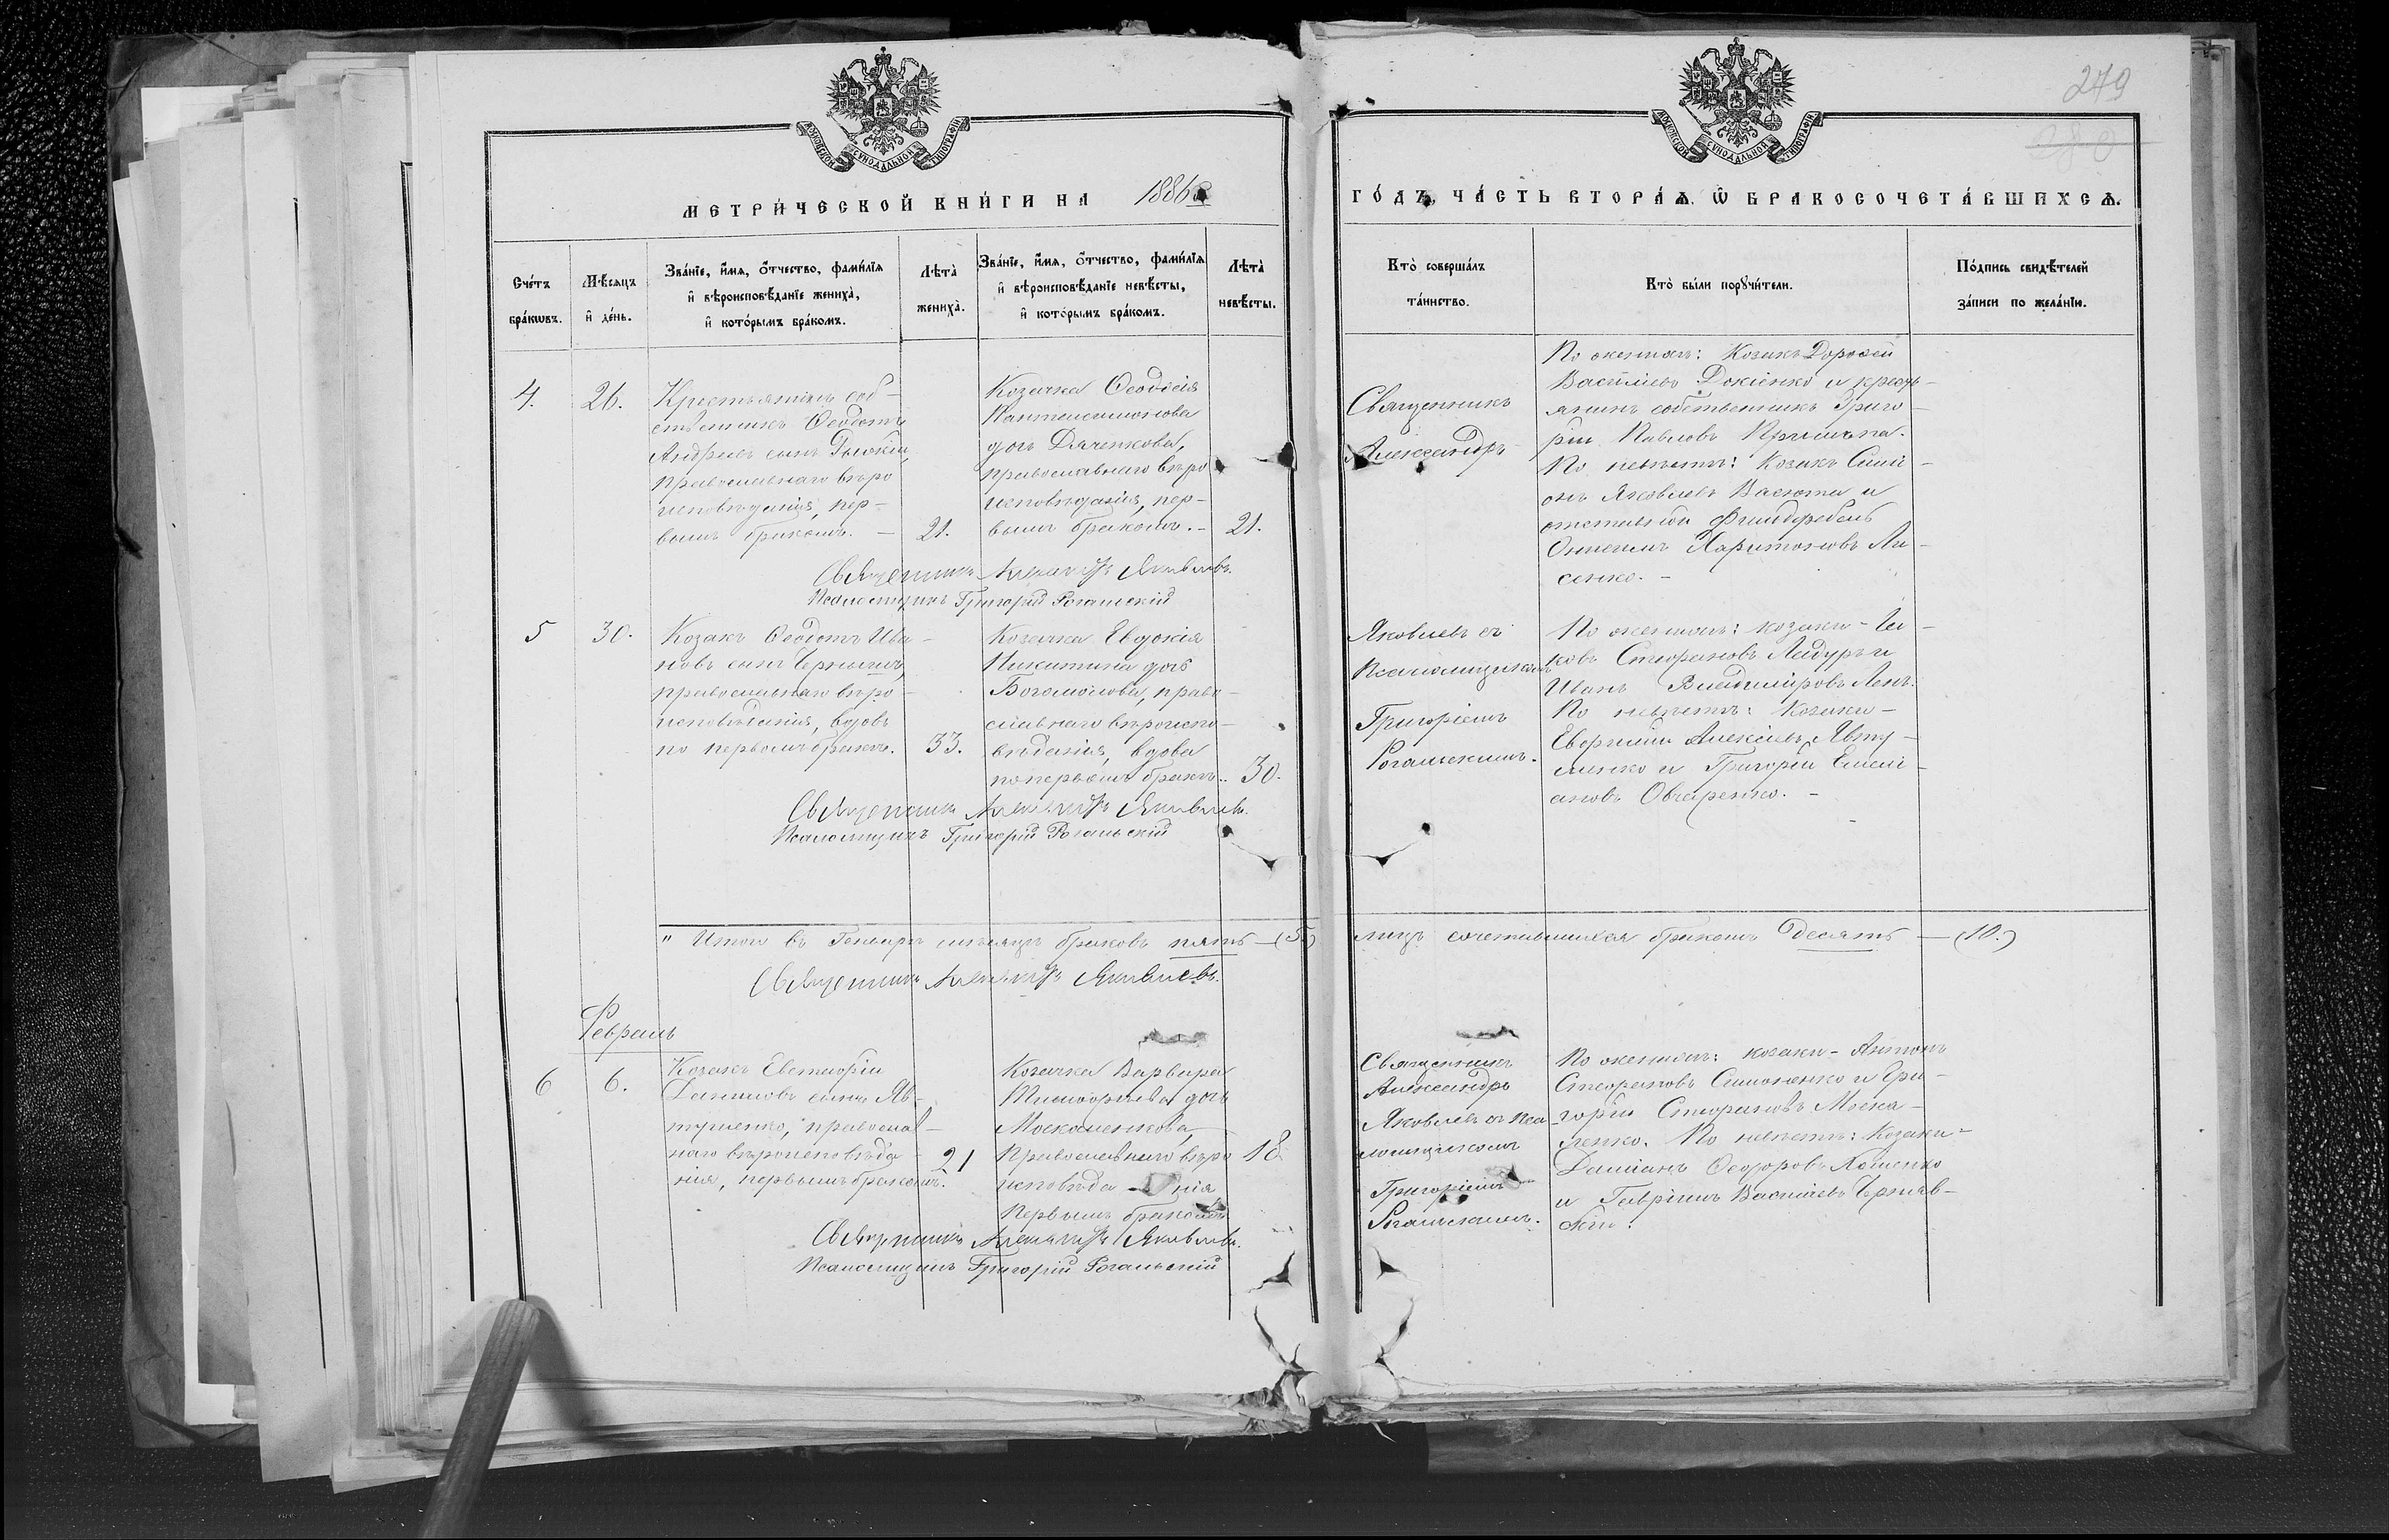 279
МОСКОВСКОЙ СѴНОДАЛЬНОЙ ТИПОГРАФІИ
МОСКОВСКОЙ СѴНОДАЛЬНОЙ ТИПОГРАФІИ
МЕТРИ́ЧЕСКОЙ КНИ́ГИ НА 1886
ГО́ДЪ, ЧА́СТЬ ВТОРА́Ѧ, Ѽ БРАКОСОЧЕТА́ВШИХСѦ.
Сче́тъ
бра́кωвъ.
Мѣ́сяцъ
и҆ де́нь.
Зва́нїе, и҆́мя, ѻ҆́тчество, фами́лїя
и҆ вѣроисповѣ́данїе жениха̀,
и҆ кото́рымъ бра́комъ.
Лѣта̀
жениха̀.
Зва́нїе, и҆́мя, ѻ҆́тчество, фами́лїя
и҆ вѣроисповѣ́данїе невѣ́сты,
и҆ кото́рымъ бра́комъ.
Лѣта̀
невѣ́сты.
Кто̀ соверша́лъ
та́инство.
Кто̀ бы́ли порꙋчи́тели.
По́дпись свидѣ́телей
за́писи по жела́нїю.
4.
26.
Крестьянинъ соб-
ственникъ Ѳеодотъ
Андреевъ сынъ
православнаго вѣро
исповѣданія, пер-
вымъ бракомъ. –
21.
Козачка Ѳеодосія
Пантелеимонова
дочь Дяченкова,
православнаго вѣро
исповѣданія, пер-
вымъ бракомъ. –
21.
Священникъ
Александръ
По женихѣ: Козакъ Дороѳей
Васіліевъ Докіенко и кресть-
янинъ собственникъ Григо-
рій Павловъ
По невѣстѣ: Козакъ Симе-
онъ Яковлевъ Васюта и
отставной Фельдфебель
Харитоновъ Ли-
сенко. –
Священникъ Александръ Яковлевъ.
Псаломщикъ Григорій Рогальскій
5
30.
Козакъ Ѳеодотъ Ива-
новъ сынъ
православнаго вѣро-
исповѣданія, вдовъ
по первомъ бракѣ.
33.
Козачка Евдокія
Никитина дочь
Богомолова, право-
славнаго вѣроиспо-
вѣданія, вдова
по первомъ бракѣ.
30.
Яковлевъ съ
Псаломщикомъ
Григоріемъ
Рогальскимъ.
По женихѣ: козаки – Іа-
ковъ Стефановъ Ладуръ и
Иванъ Владиміровъ
По невѣстѣ: Козаки –
Алексіевъ Явту-
шенко и Григорій Емелі-
ановъ Овчаренко. –
Священникъ Александръ Яковлевъ.
Псаломщикъ Григорій Рогальскій
" Итого въ Генварѣ мѣсяцѣ браковъ пять – (5.) лицъ сочетавшихся бракомъ десять – (10.)
Священникъ Александръ Яковлевъ.
Февраль
6
6.
Козакъ Евстафій
Даниловъ сынъ Яв-
тушенко, православ-
наго вѣроисповѣда-
нія, первымъ бракомъ.
21
Козачка Варвара
Тимофеева дочь
Москаленкова,
Православнаго вѣро
исповѣда – нія
Первымъ бракомъ
18.
Священникъ
Александръ
Яковлевъ съ Пса-
ломщикомъ
Григоріемъ
Рогальскимъ.
По женихѣ: козаки – Антонъ
Стефановъ Симоненко и Гри-
горій Стефановъ Моска-
ленко. По невѣстѣ: Козаки –
Даміанъ Ѳеодоровъ
и Гавріилъ Васіліевъ Черняв-
скій.
Священникъ Александръ Яковлевъ.
Псаломщикъ Григорій Рогальскій